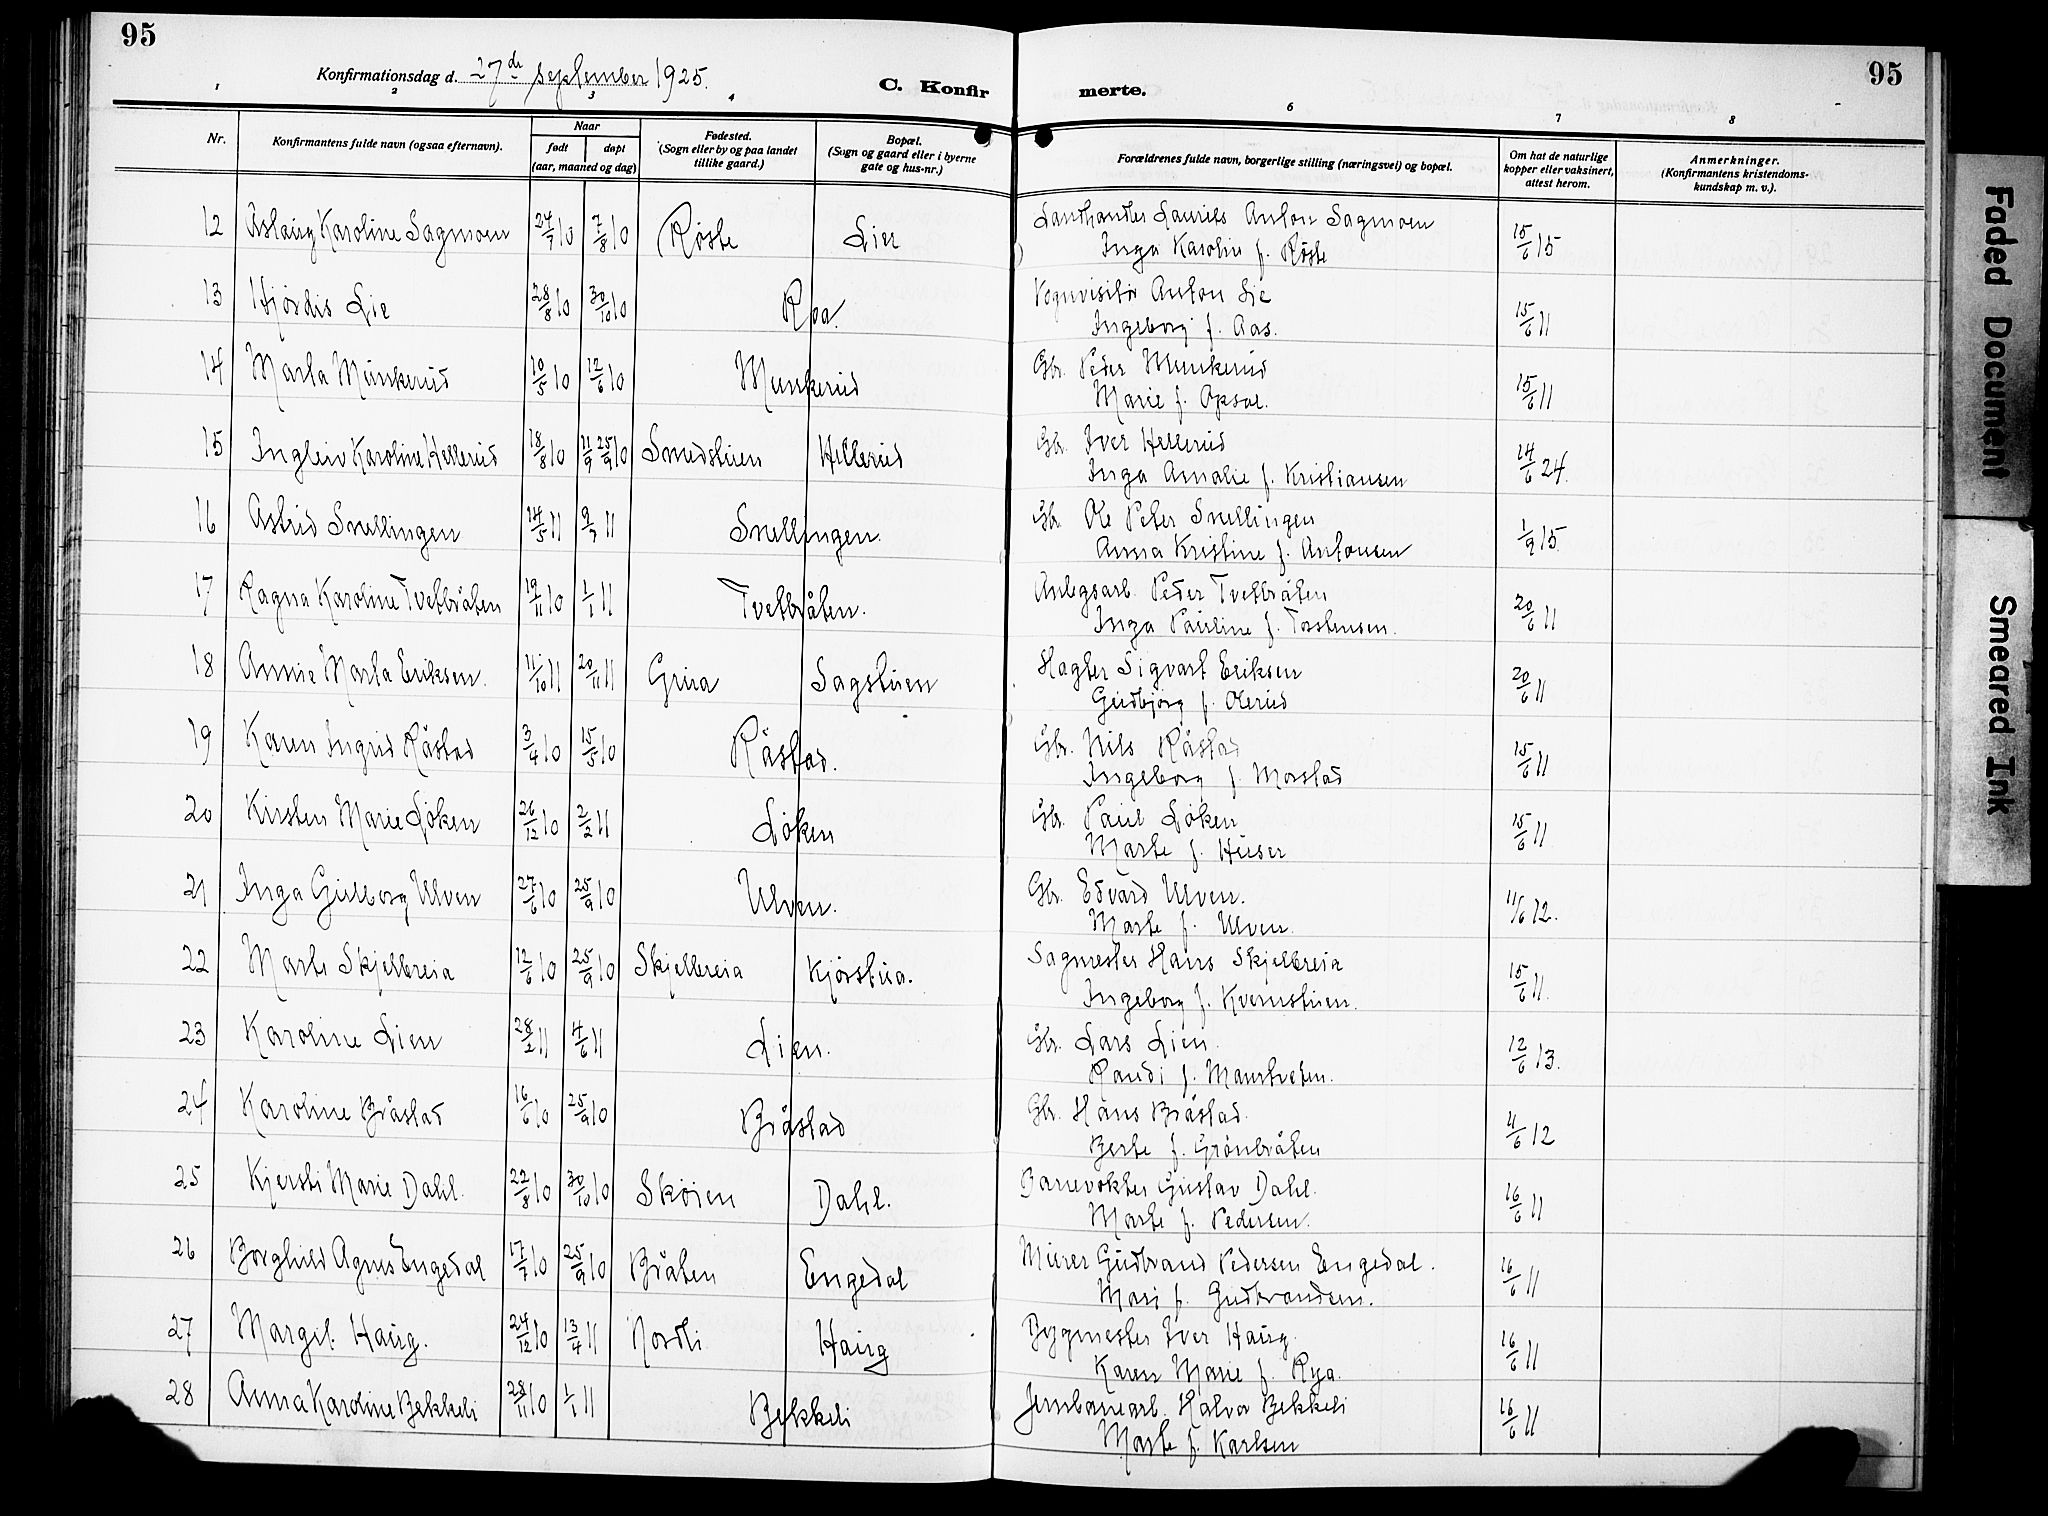 95
95
Konfirmationsdag d. 27de september 1925.
C. Konfir
merte.
1 2 3 4 6 7 8
Nr.
Konfirmantens fulde navn (ogsaa efternavn).
Naar
født
døpt
(aar, maaned og dag)
Fødested.
(Sogn eller by og paa landet
tillike gaard.)
Bopæl.
(Sogn og gaard eller i byerne
gate og hus-nr.)
Forældrenes fulde navn, borgerlige stilling (næringsvei) og bopæl.
Om hat de naturlige
kopper eller vaksinert,
attest herom.
Anmerkninger.
(Konfirmantens kristendoms-
kundskap m. v.).
12 Aslaug Karoline Sagmoen 24/7 10 7/8 10 Røste Lier Landhandler Laurits Anton Sagmoen 15/6 15
Inga Karolin f. Røste
13 Hjördis Lie 28/8 10 30/10 10 Roa. Vognvisitør Anton Lie 15/6 11
Ingeborg f. Aas.
14 Marta Munkerud 10/5 10 12/6 10 Munkerud Gbr. Peder Munkerud 15/6 11
Marie f. Apsal.
15 Ingleiv Karoline Hellerud 18/8 10 11/9 25/9 10 Smedstuen Hellerud Gbr. Iver Hellerud 14/6 24.
Inga Amalie f. Kristiansen
16 Astrid Snellingen 14/5 11 9/7 11 Snellingen. Gbr. Ole Peter Snellingen 1/9 15.
Anna Kristine f. Antonsen
17 Ragna Karoline Tvetbråten 19/11 10 1/1 11 Tvetbråten. Anlegsarb. Peder Tvetbråten 20/6 11
Inga Pauline f. Torstensen.
18 Annie Marta Eriksen. 11/10 11 20/11 11 Grua Sagstuen Hagter Sigvart Eriksen 20/6 11
Gudbjørg f. Olerud
19 Karen Ingrid Råstad 3/4 10 15/5 10 Råstad. Gbr. Nils Råstad 15/6 11
Ingeborg f. Morstad
20 Kirsten Marie Löken 26/12 10 2/2 11 Löken Gbr. Paul Löken 15/6 11
Marte f. Huser
21 Inga Gulborg Ulven 27/6 10 25/9 10 Ulven. Gbr. Edvard Ulven. 11/6 12.
Marte f. Ulven.
22 Marte Skjelbreia 12/6 10 25/9 10 Skjelbreia Kjörstua. Sagmester Hans Skjelbreia 15/6 11.
Ingeborg f. Kvernstuen.
23 Karoline Lien 28/2 11 4/6 11 Lien. Gbr. Lars Lien. 12/6 13.
Randi f. Maurtveten.
24 Karoline Bråstad 16/6 10 25/9 10 Bråstad Gbr. Hans Bråstad. 11/6 12
Berte f. Grönbråten
25 Kjersti Marie Dahl. 22/8 10 30/10 10 Sköien Dahl. Banevokter Gustav Dahl. 16/6 11
Marte f. Pedersen.
26 Borghild Agnes Engedal 17/7 10 25/9 10 Bråten Engedal Murer Gudbrand Pedersen Engedal. 16/6 11
Mari f. Gudbrandsen.
27 Margit Haug. 24/12 10 13/4 11 Nordli Haug Bygmester Iver Haug. 16/6 11
Karen Marie f. Rya.
28 Anna Karoline Bekkeli 28/11 10 1/1 11 Bekkeli Jernbanearb. Halvor Bekkeli 16/6 11
Marte f. Karlsen
Faded Document
Smeared Ink